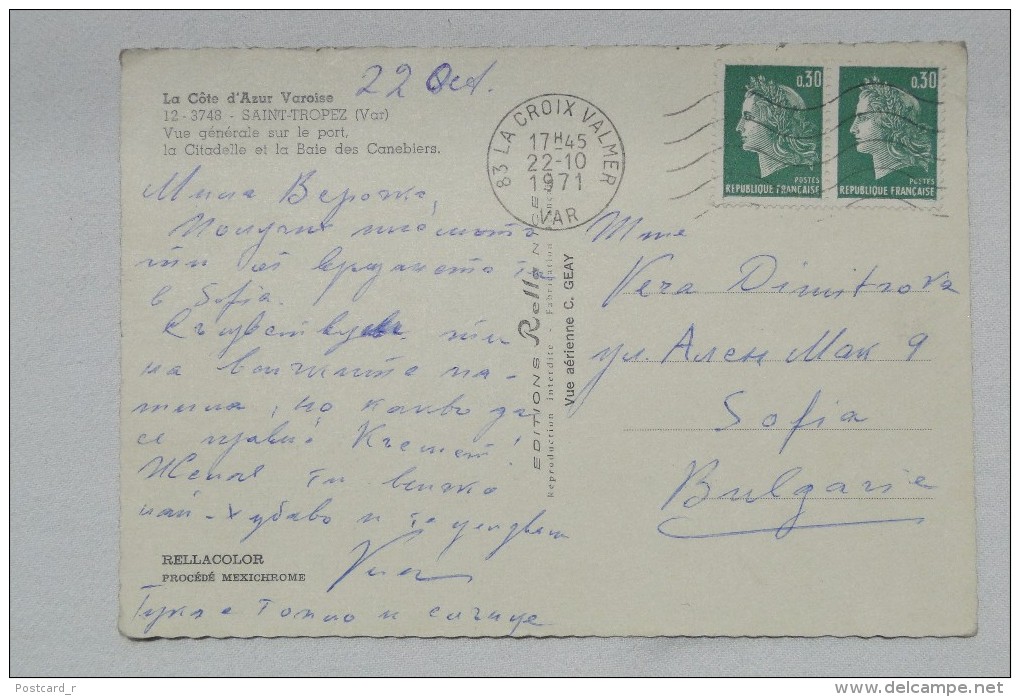 22 Oct.
La Côte d'Azur Varoise
12-3748 - SAINT-TROPEZ (Var)
Vue générale sur le port,
la Citadelle et la Baie des Canebiers.
83 LA CROIX VALMER
17H45
22-10
1971
VAR
0.30
POSTES
REPUBLIQUE FRANÇAISE
0.30
POSTES
REPUBLIQUE FRANÇAISE
Мила Верочка,
ти от
в Sofia.
ти
на
, но какво да
се прави!
Желая ти всичко
най-хубаво и те целувам
Тук е топло и слънце
RELLACOLOR
PROCÉDÉ MEXICHROME
EDITIONS Rella NICE
Reproduction Interdite - Fabrication
Vue aérienne C. GEAY
Mme
Vera Dimitrova
ул. Ален Мак 9
Sofia
Bulgarie
Postcard_r
www.delcampe.net